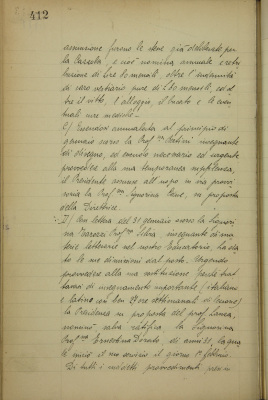 412
assunzione furono le stesse già deliberate per
la Cassata, e cioè nomina annuale e retri
buzione di lire 80 mensili, oltre l'indennità
di caro vestiario pure di L 80 mensili, ed ol
tre il vitto, l'alloggio, il bucato e le even
tuali cure mediche.
C) Essendosi ammalata al principio di
gennaio scorso la Prof.ssa insegnante
di disegno, ed essendo necessario ed urgente
provvedere alla sua temporanea supplenza,
il Presidente assunse all'uopo in via provvi
soria la Prof.ssa Signorina su proposta
della Direttrice.
D) Con lettera del 31 gennaio scorso la Signori
na Prof.ssa Silvia insegnante di ma
terie letterarie nel nostro Educandato, ha da
to le sue dimissioni dal posto. Urgendo
provvedere alla sua sostituzione perché trat
tavasi di insegnamento importante (italiano
e latino con ben 27 ore settimanali di lezione)
la Presidenza su proposta del prof.
nominò salva ratifica la Signorina
Prof.ssa Ernestina di anni 31, la qua
le iniziò il suo servizio il giorno 1° febbraio.
Di tutti i suddetti provvedimenti presi